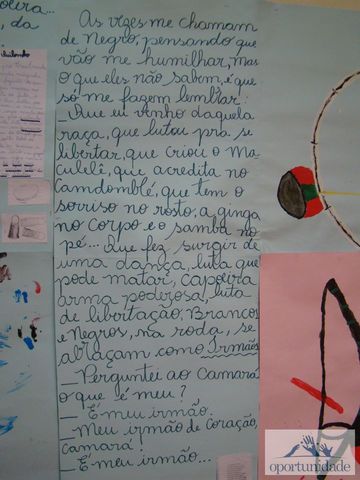 oeira...
, da
As vezes me chamam
de Negro, pensando que
vão me humilhar, mas
o que eles não sabem, é que
só me fazem lembrar:
_ Que eu venho daquela
raça, que lutou pra se
libertar, que criou o Ma
culelê, que acredita no
Camdomblé, que tem o
sorriso no rosto, a ginga
no corpo e o samba no
pé... Que fez surgir de
uma dança, luta que
pode matar, Capoeira
arma poderosa, luta
de libertação, Brancos
e Negros, na roda, se
abraçam como Irmãos
_ Perguntei ao Camará
o que é meu?
_ É meu irmão.
_ Meu irmão de Coração,
Camará!
_ É meu irmão...
oportunidade